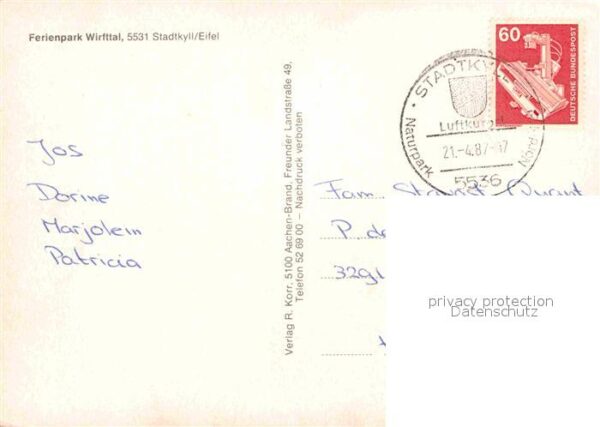 Ferienpark Wirfttal, 5531 Stadtkyll/Eifel
60
DEUTSCHE BUNDESPOST
STADTKYLL
Luftkurort
21.-4.87-17
Naturpark Nord
5536
Jos
Dorine
Marjolein
Patricia
Verlag R. Korr, 5100 Aachen-Brand, Freunder Landstraße 49,
Telefon 52 69 00 – Nachdruck verboten
Fam.
P. de
3291
privacy protection
Datenschutz